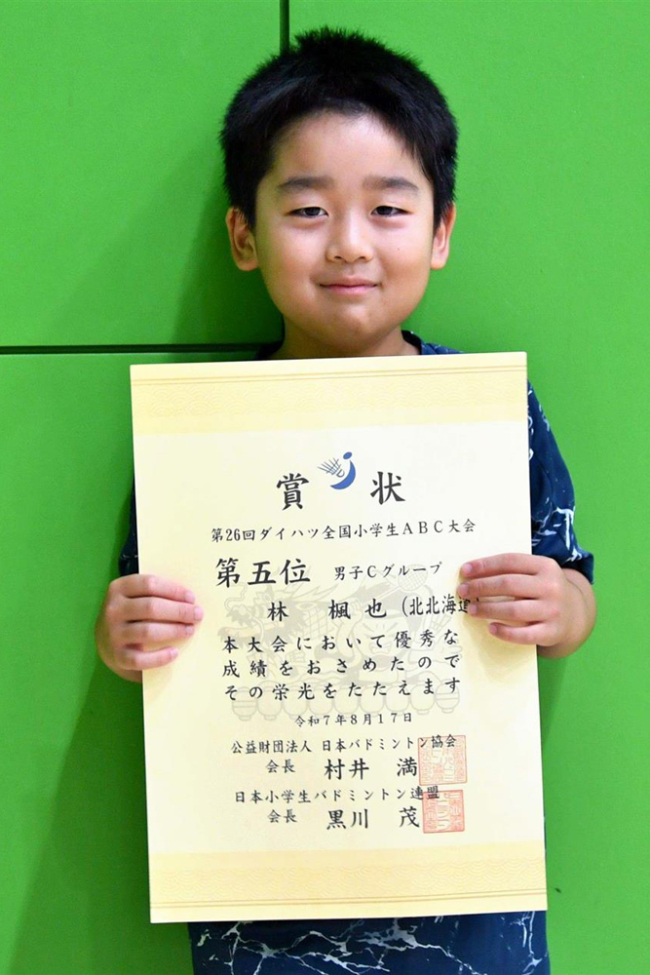 賞状
第26回ダイハツ全国小学生ABC大会
第五位 男子Cグループ
林 楓也(北北海道)
本大会において優秀な
成績をおさめたので
その栄光をたたえます
令和7年8月17日
公益財団法人 日本バドミントン協会
会長 村井 満
日本小学生バドミントン連盟
会長 黒川 茂